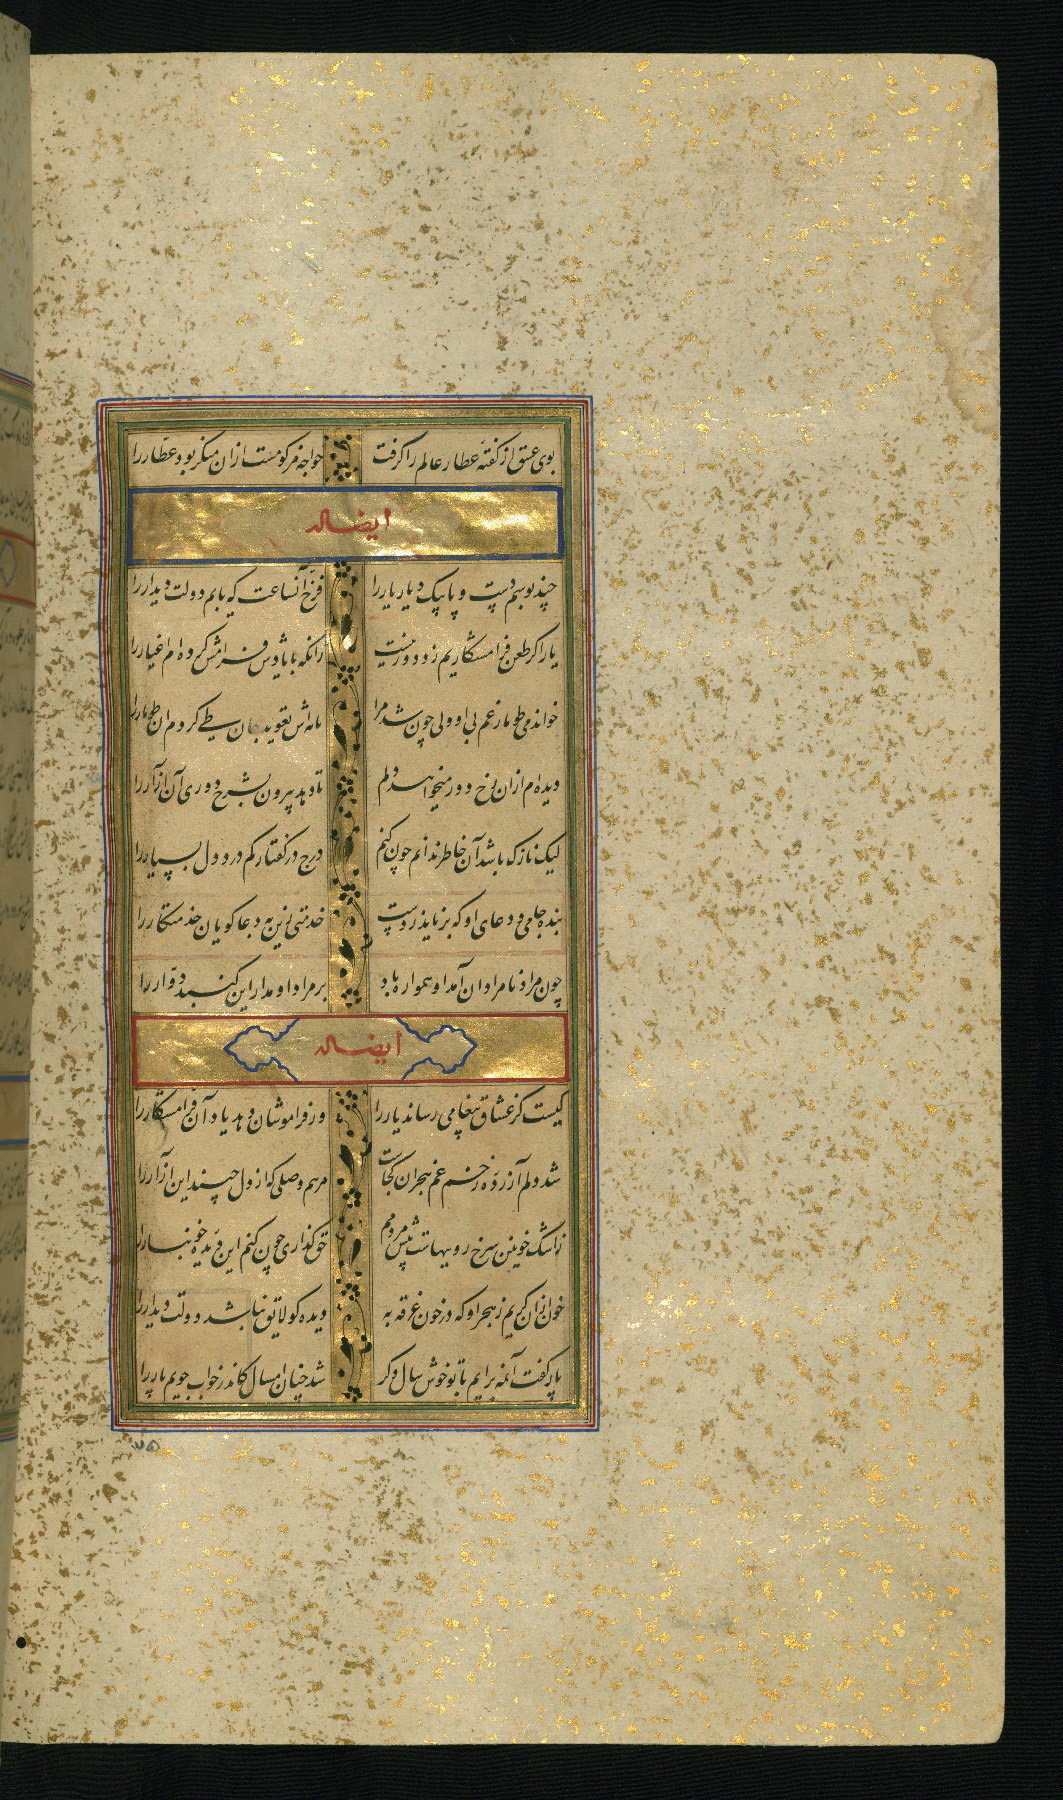 بوی عشق از گفته عطار عالم را گرفت خواجه مزکومست ازان منکر بود عطار را
ایضاله
چند بوسم دست و پا پیک دیار یار را فرخ آنساعت که یابم دولت دیدار را
یار اگر طعن فرامشکاریم زد دور نیست زانکه با یادش فرامش کرده‌ام اغیار را
خواندمی طومار غم بی او ولی چون شد مرا نامه‌اش تعوید جان طی کردم ان طومار را
دیده‌ام ازان رخ دور میخواهد دلم تا دهد بیرون بشرح دوری آن آزار را
لیک نازک باشد آن خاطر ندانم چون کنم درج در گفتار کم درد دل بسیار را
بنده جامی و دعای او که برناید ز دست خدمتی زین به دعاگویان خدمتکار را
چون مراد نامرادان آمد او همواره باد بر مراد او مدار این گنبد دوار را
ایضاله
کیست کز عشاق پیغامی رساند یار را وز فراموشان دهد یاد آن فرامشکار را
شد دلم آزرده زخم غم هجران کجاست مرهم وصلی که از دل چیند این آزار را
ز اشک خونین سرخ روییهاست پیش مردمم حق گذاری چون کنم این دیده خونبار را
خون ازان گریم ز هجر او که در خون غرقه به دیده کو لایق نباشد دولت دیدار را
پار گفت آنمه برایم با تو خوش سال دگر شد چنان امسال کاندر خواب جویم پار را
۷۵